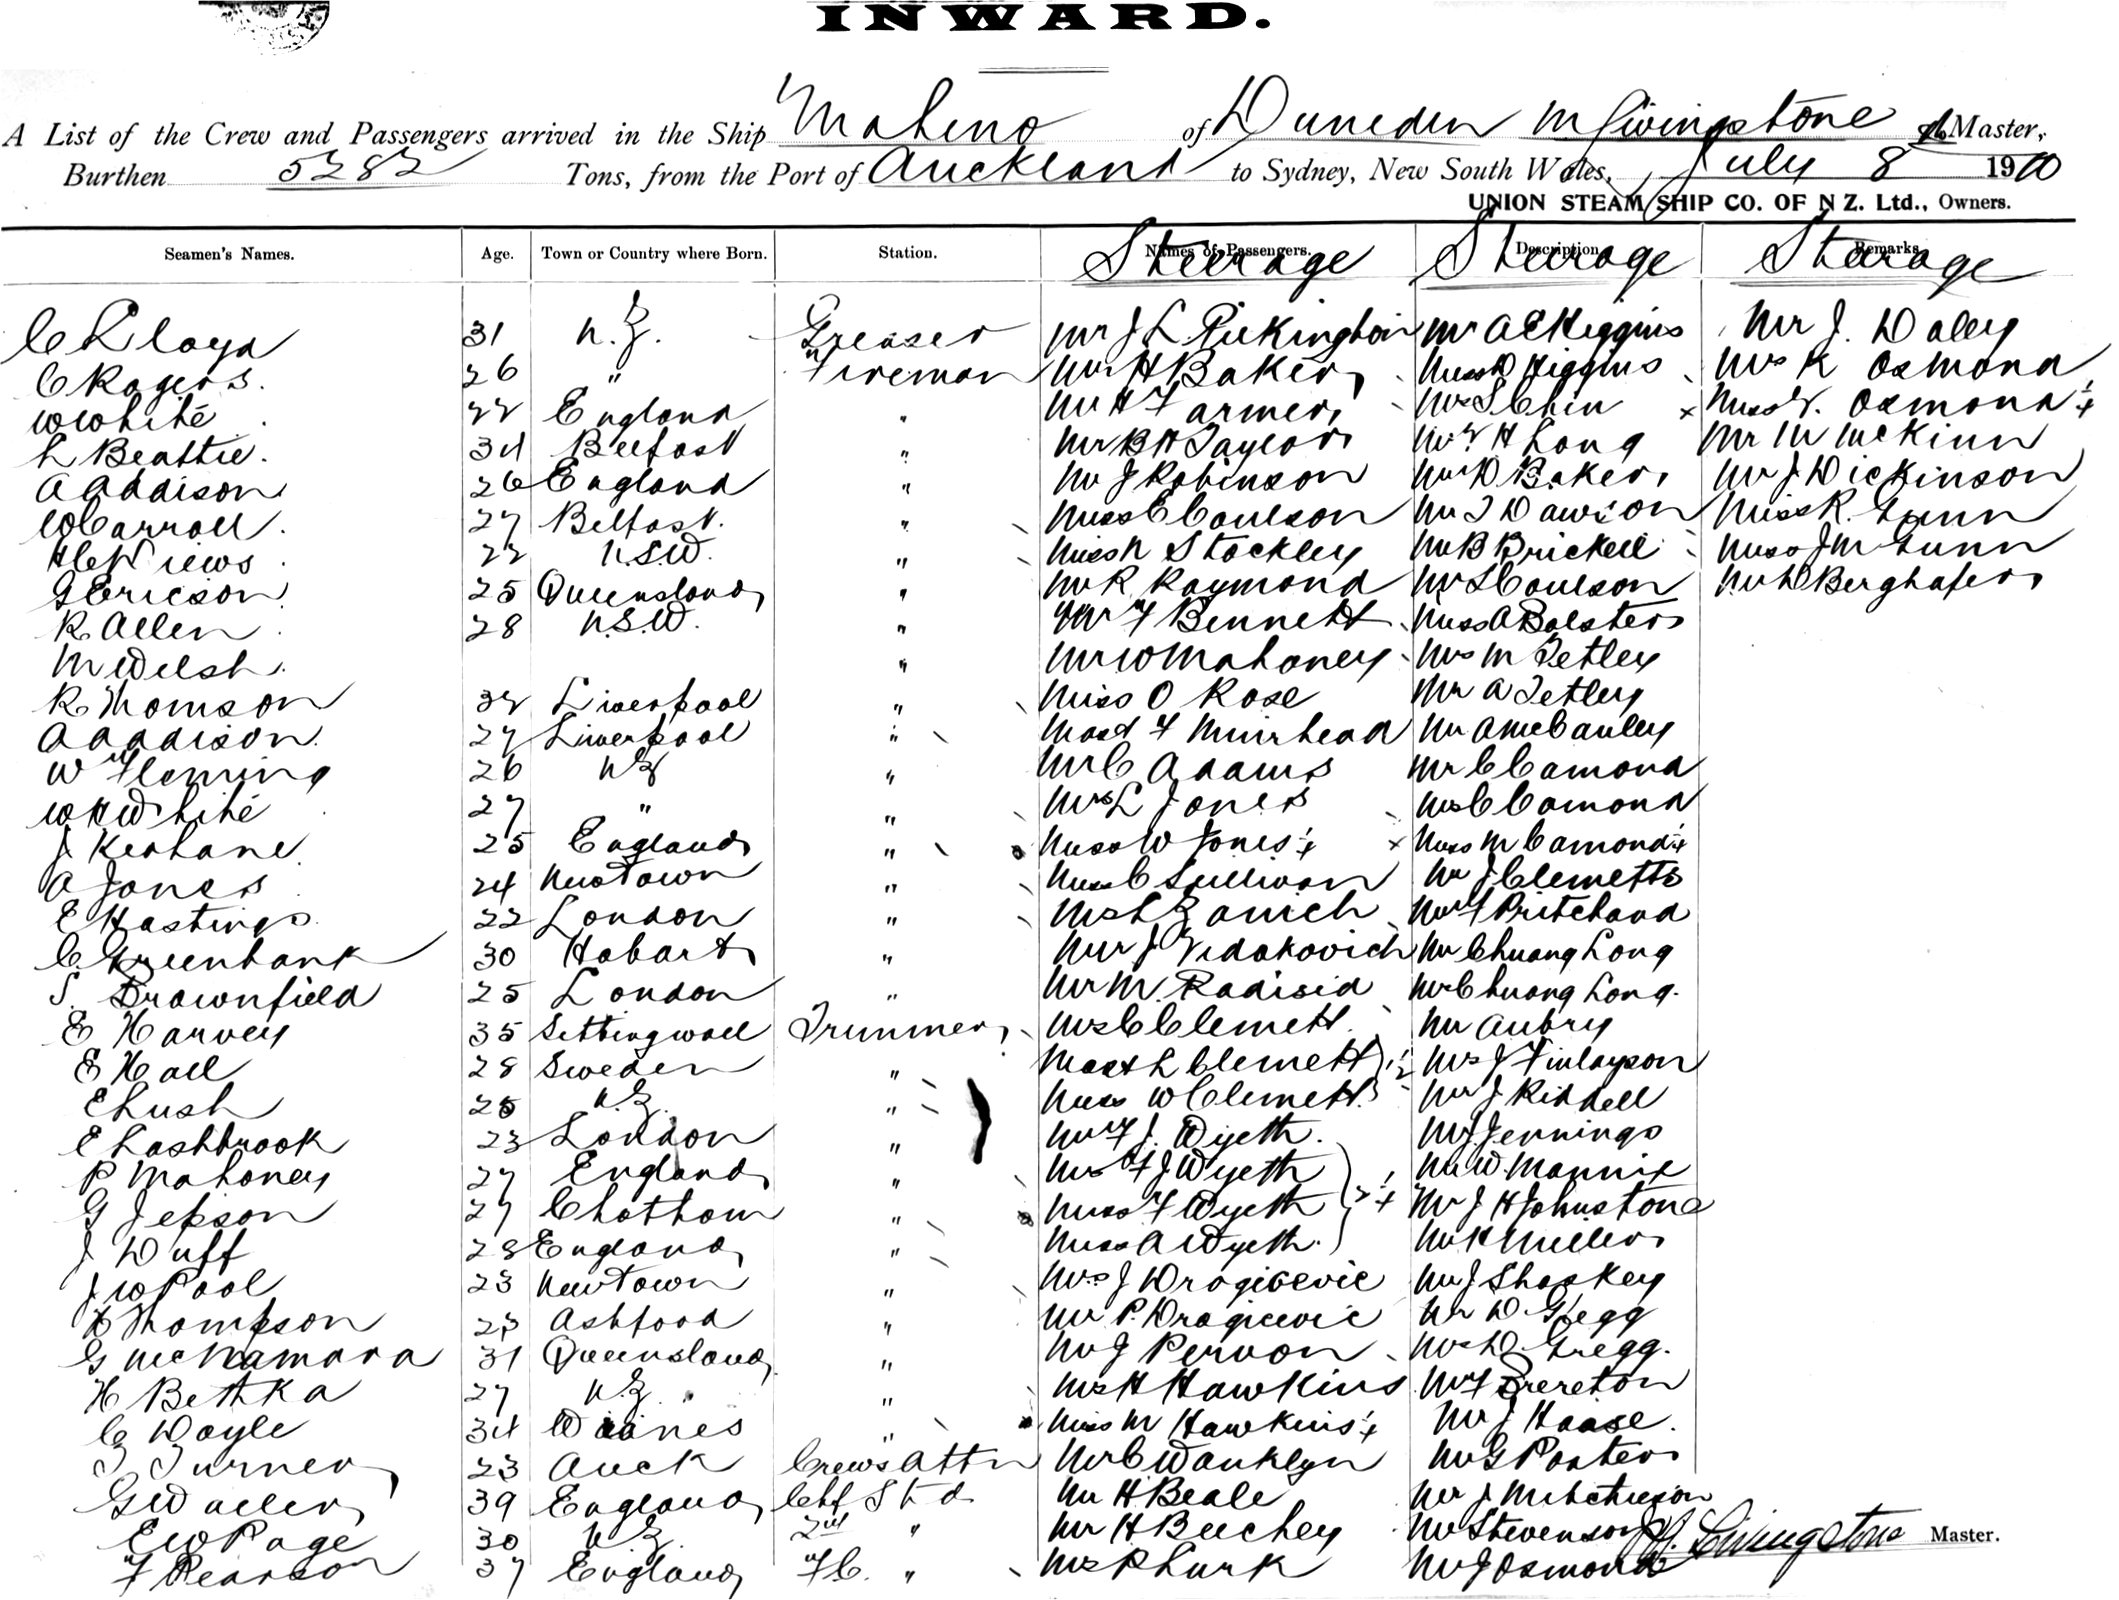 INWARD.
A List of the Crew and Passengers arrived in the Ship Maheno of Dunedin M Livingstone Master,
Burthen 5282 Tons, from the Port of Auckland to Sydney, New South Wales, July 8 1910
UNION STEAM SHIP CO. OF N Z. Ltd., Owners.
Seamen's Names. Age. Town or Country where Born. Station. Names of Passengers. Description Remarks
Steerage Steerage Steerage
C Lloyd 31 N.Z. Greaser Mr J L Pickington Mr A E Higgins Mr J. Daley
C Rogers. 26 " Fireman Mr H Baker Miss D Higgins Mrs K Osmond
W White 22 England " Mr H Farmer Mrs S Chin Miss V. Osmond ½
L Beattie. 34 Belfast " Mr B H Taylor Mr H Long Mr M McKinn
A Addison 26 England " Mr J Robinson Mr D Baker Mr J Dickinson
W Carroll. 27 Belfast. " Miss C Coulson Mr J Dawson Miss R. Gunn
H C News 22 N.S.W. " Miss N Stockley Mr B Brickell Miss J M Gunn
G Ericson 25 Queensland " Mr R Raymond Mr S Coulson Mr D Berghafer
R Allen 28 N.S.W. " Mr F Bennett Miss A Bolster
M Welsh. " Mr W Mahoney Mrs M Tetley
R Thomson 32 Liverpool " Miss O Rose Mr A Tetley
A Addison 27 Liverpool " Mast F Muirhead Mr A McCauley
W Fleming 26 NZ " Mr C Adams Mr C Camond
W H White 27 " " Mrs L Jones Mrs C Camond
J Keohane 25 England " Miss W Jones ½ Miss M Camond ½
A Jones 24 Newtown " Miss C Sullivan Mr J Clemetts
E Hastings 22 London " Mrs L Zanich Mr F Pritchard
C. Greenbank 30 Hobart " Mr J Vidakovich Mr Chuang Long
S. Brownfield 25 London " Mr M. Radisid Mr Chuang Long.
E Harvey 35 Sittingwall Trimmer Mrs C Clemett Mr Aubry
E Hall 28 Sweden " Mast L Clemett Mrs J Finlayson
E Lush 25 N.Z. " Miss W Clemett Mr J Riddell
E Lashbrook 23 London " Mr F J. Wyeth. Mr J Jennings
P Mahoney 27 England " Mrs F J Wyeth Mr W. Mannix
G Jepson 27 Chatham " Miss F Wyeth Mr J H Johnstone
J Duff 28 England " Miss A Wyeth. Mr K Miller
J W Pool 23 Newtown " Mrs J Dragicevic Mr J Sharkey
H Thompson 23 Ashford " Mr P. Dragicevic Mr D. Gregg
G McNamara 31 Queensland " Mr J Pervon Mrs D. Gregg.
H Bethka 27 N.Z. " Mrs H Hawkins Mr F Brereton
C Doyle 34 " Miss M Hawkins ½ Mr J Haase.
T Turner 23 Auck Crews Attn Mr C Wanklyn Mr G Porter
G Waller 39 England Chf Std Mr H Beale Mr J
E W Page 30 N.Z. 2nd " Mr H Buchey Mr Stevenson
F Pearson 37 England F.C. " Mrs P Lurk Mr J Osmond
M. Livingstone Master.